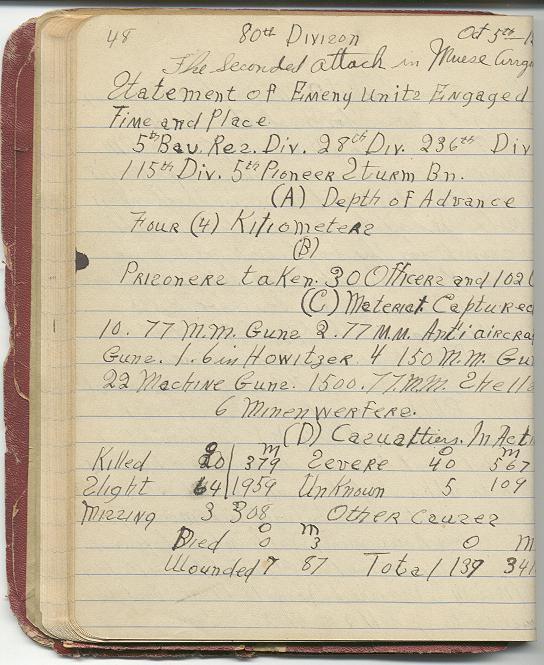 48 80th Divizon Oct 5th
The Seconded attack in Muese Arrg
Statement of Emeny Units Engaged
Time and Place
5th Bav. Rez. Div. 28th Div. 236th Div
115th Div. 5th Pioneer Sturm Bn.
(A) Depth of Advance
Four (4) Kiliometerz
(B)
Prizonerz taken. 30 Officerz and 102
(C) Material Captured
10. 77 M.M. Gunz 2. 77 M.M. Anti aircra
Gunz. 1. 6 in Howitzer. 4 150 M.M. Gu
22 Machine Gunz. 1500. 77 M.M. Shellz
6 Minenwerferz.
(D) Casualtiez. In Acti
O M O M
Killed 20 379 Severe 40 567
Slight 64 1959 Unknown 5 109
Mizzing 3 308 Other Causez
O M
Died 0 3 O M
Wounded 7 87 Total 139 341